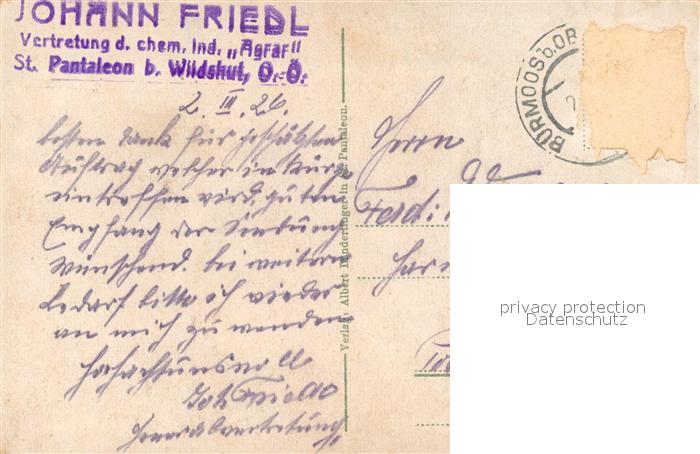 JOHANN FRIEDL
Vertretung d. chem. Ind. „Agrar"
St. Pantaleon b. Wildshut, O.-Ö.
2. III. 26.
besten Dank für geschätzten
Auftrag welcher in Kürze
eintreffen wird, guten
Empfang der Sendung
wünschend. bei weiteren
Bedarf bitte ich wieder
an mich zu wenden
hochachtungsvoll
Joh Friedl
Generalvertretung
Verlag: Albert in St. Pantaleon.
BÜRMOOS b. OB
Herrn
Ferd:
privacy protection
Datenschutz